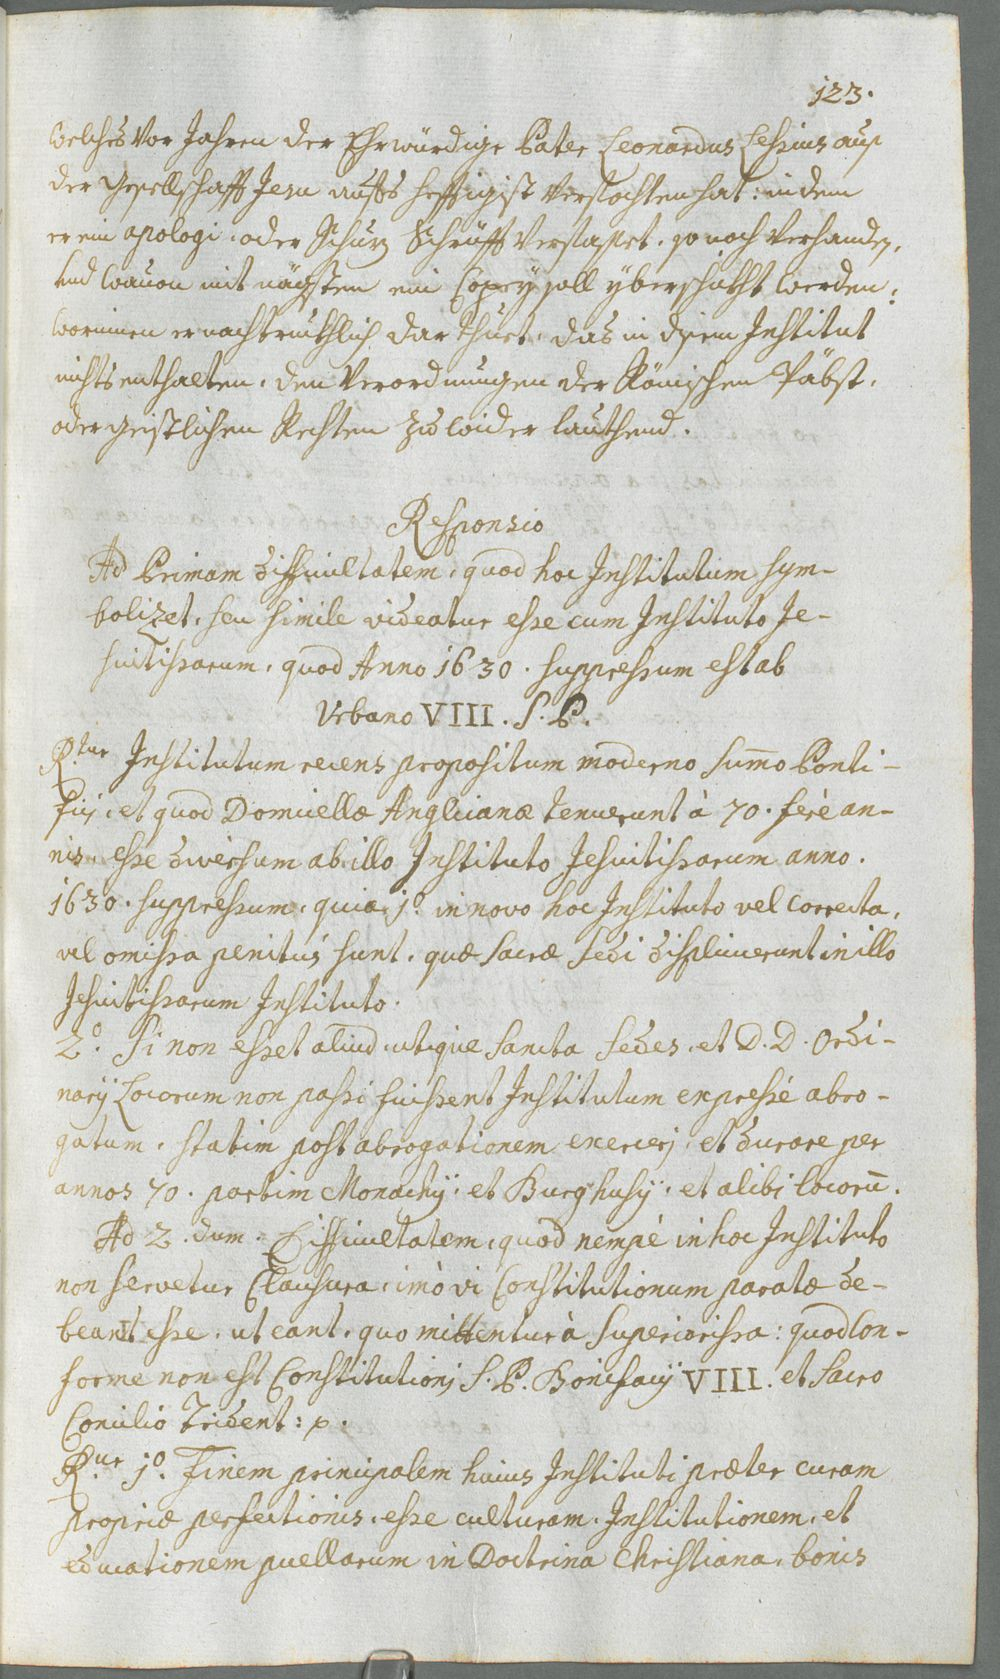 123.
welches Vor Jahren der Ehrwürdige Pater Leonardus Lessius auß
der Gesellschafft Jesu aufs hefftigist Verfochten hat: in dem
er ein apologi, oder Schuz Schrüfft Verfasset, so noch Verhanden,
und wauon mit nägsten ein Copey soll yberschickht werden:
worinnen er nachtruckhlich dar thuet, das in disem Institut
nichts enthalten, den Verordnungen der Römischen Päbst,
oder geistlichen Rechten zu wider lauthend.
Responsio
Ad Primam difficultatem, quod hoc Institutum sym-
bolizet, seu simile videatur esse cum Instituto Je-
suitissarum, quod Anno 1630. suppressum est ab
Urbano VIII. S. P.
R.tur Institutum recens propositum moderno summo Ponti-
fici, et quod Domicellæ Anglicanæ tenuerunt à 70. ferè an-
nis, esse diversum ab illo Instituto Jesuitissarum anno.
1630. suppressum, quia 1º. in novo hoc Instituto vel correcta,
vel omissa penitus sunt, quæ Sacræ Sedi displicuerunt in illo
Jesuitissarum Instituto.
2º. Si non esset aliud, utique Sancta Sedes, et D. D. Ordi-
narÿ Locorum non passi fuissent Institutum expressè abro-
gatum, statim post abrogationem exercerj, et durare per
annos 70. partim Monachÿ, et Burghusÿ, et alibi locorū.
Ad 2.dam. Difficultatem, quod nempè in hoc Instituto
non servetur Clausura, imò vi Constitutionum paratæ de-
beant esse, ut eant, quo mittentur à Superiorissa: quod con-
forme non est Constitutionj S. P. Bonifacÿ VIII. et Sacro
Concilio Trident: p.
R.tur 1º. Finem principalem huius Instituti præter curam
propriæ perfectionis, esse culturam, Institutionem, et
educationem puellarum in Doctrina Christiana, bonis